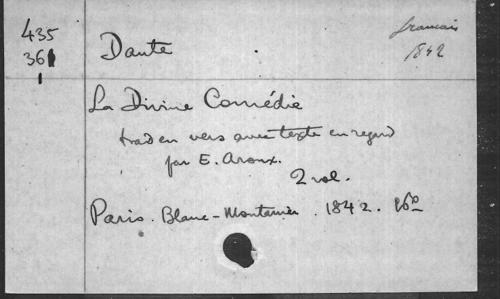 435
361
Dante
français
1842
La Divine Comédie
trad en vers avec texte en regard
par E. Aroux.
2 vol.
Paris. Blanc-Montanier. 1842. 16o